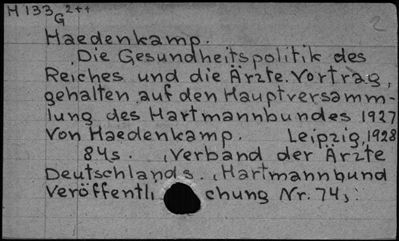 M 133 G 2++
2
Haedenkamp.
Die Gesundheitspolitik des
Reiches und die Ärzte. Vortrag,
gehalten auf den Hauptversamm-
lung des Hartmannbundes 1927
von Haedenkamp. Leipzig, 1928
84s. (Verband der Ärzte
Deutschlands. (Hartmannbund
Veröffentli chung Nr. 74):